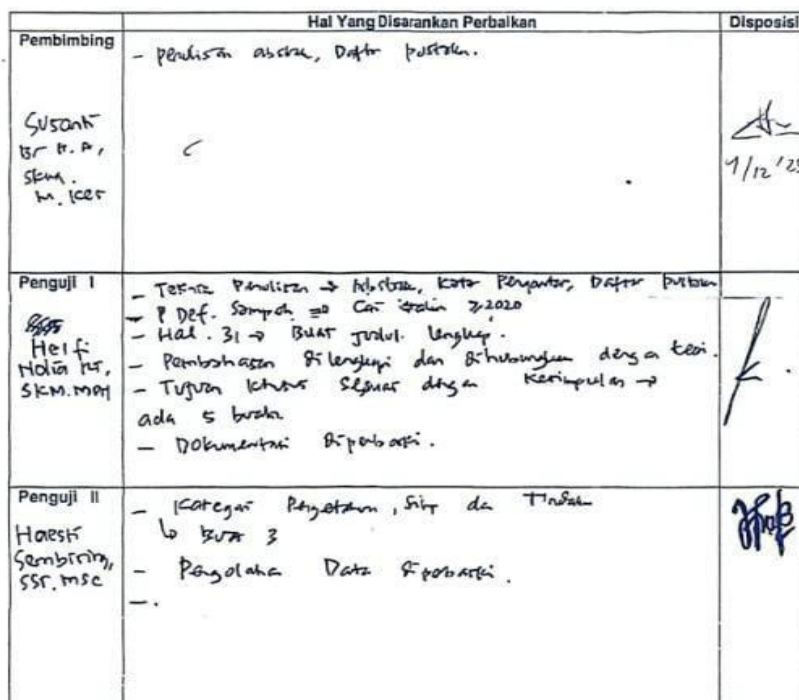 Hal Yang Disarankan Perbaikan
Disposisi
Pembimbing
- penulisan abstrak, Daftar pustaka.
Susanti
Br
SKM.
M. Kes
/12 '25
Penguji I
Helfi
Nolia
SKM. MPH
- Teknis Penulisan → Abstrak, Kata Pengantar, Daftar pustaka
- Def. Sampah ⇒ Cari ≥ 2020
- Hal. 31 → Buat judul lengkap.
- Pembahasan dilengkapi dan dihubungkan dengan teori.
- Tujuan khusus sesuai dengan Kesimpulan →
ada 5 buah
- Dokumentasi diperbaiki.
Penguji II
Haesti
Sembiring,
SST. MSc
- Kategori Pengetahuan, Sikap dan Tindakan
↳ 3
- Pengolahan Data diperbaiki.
-.